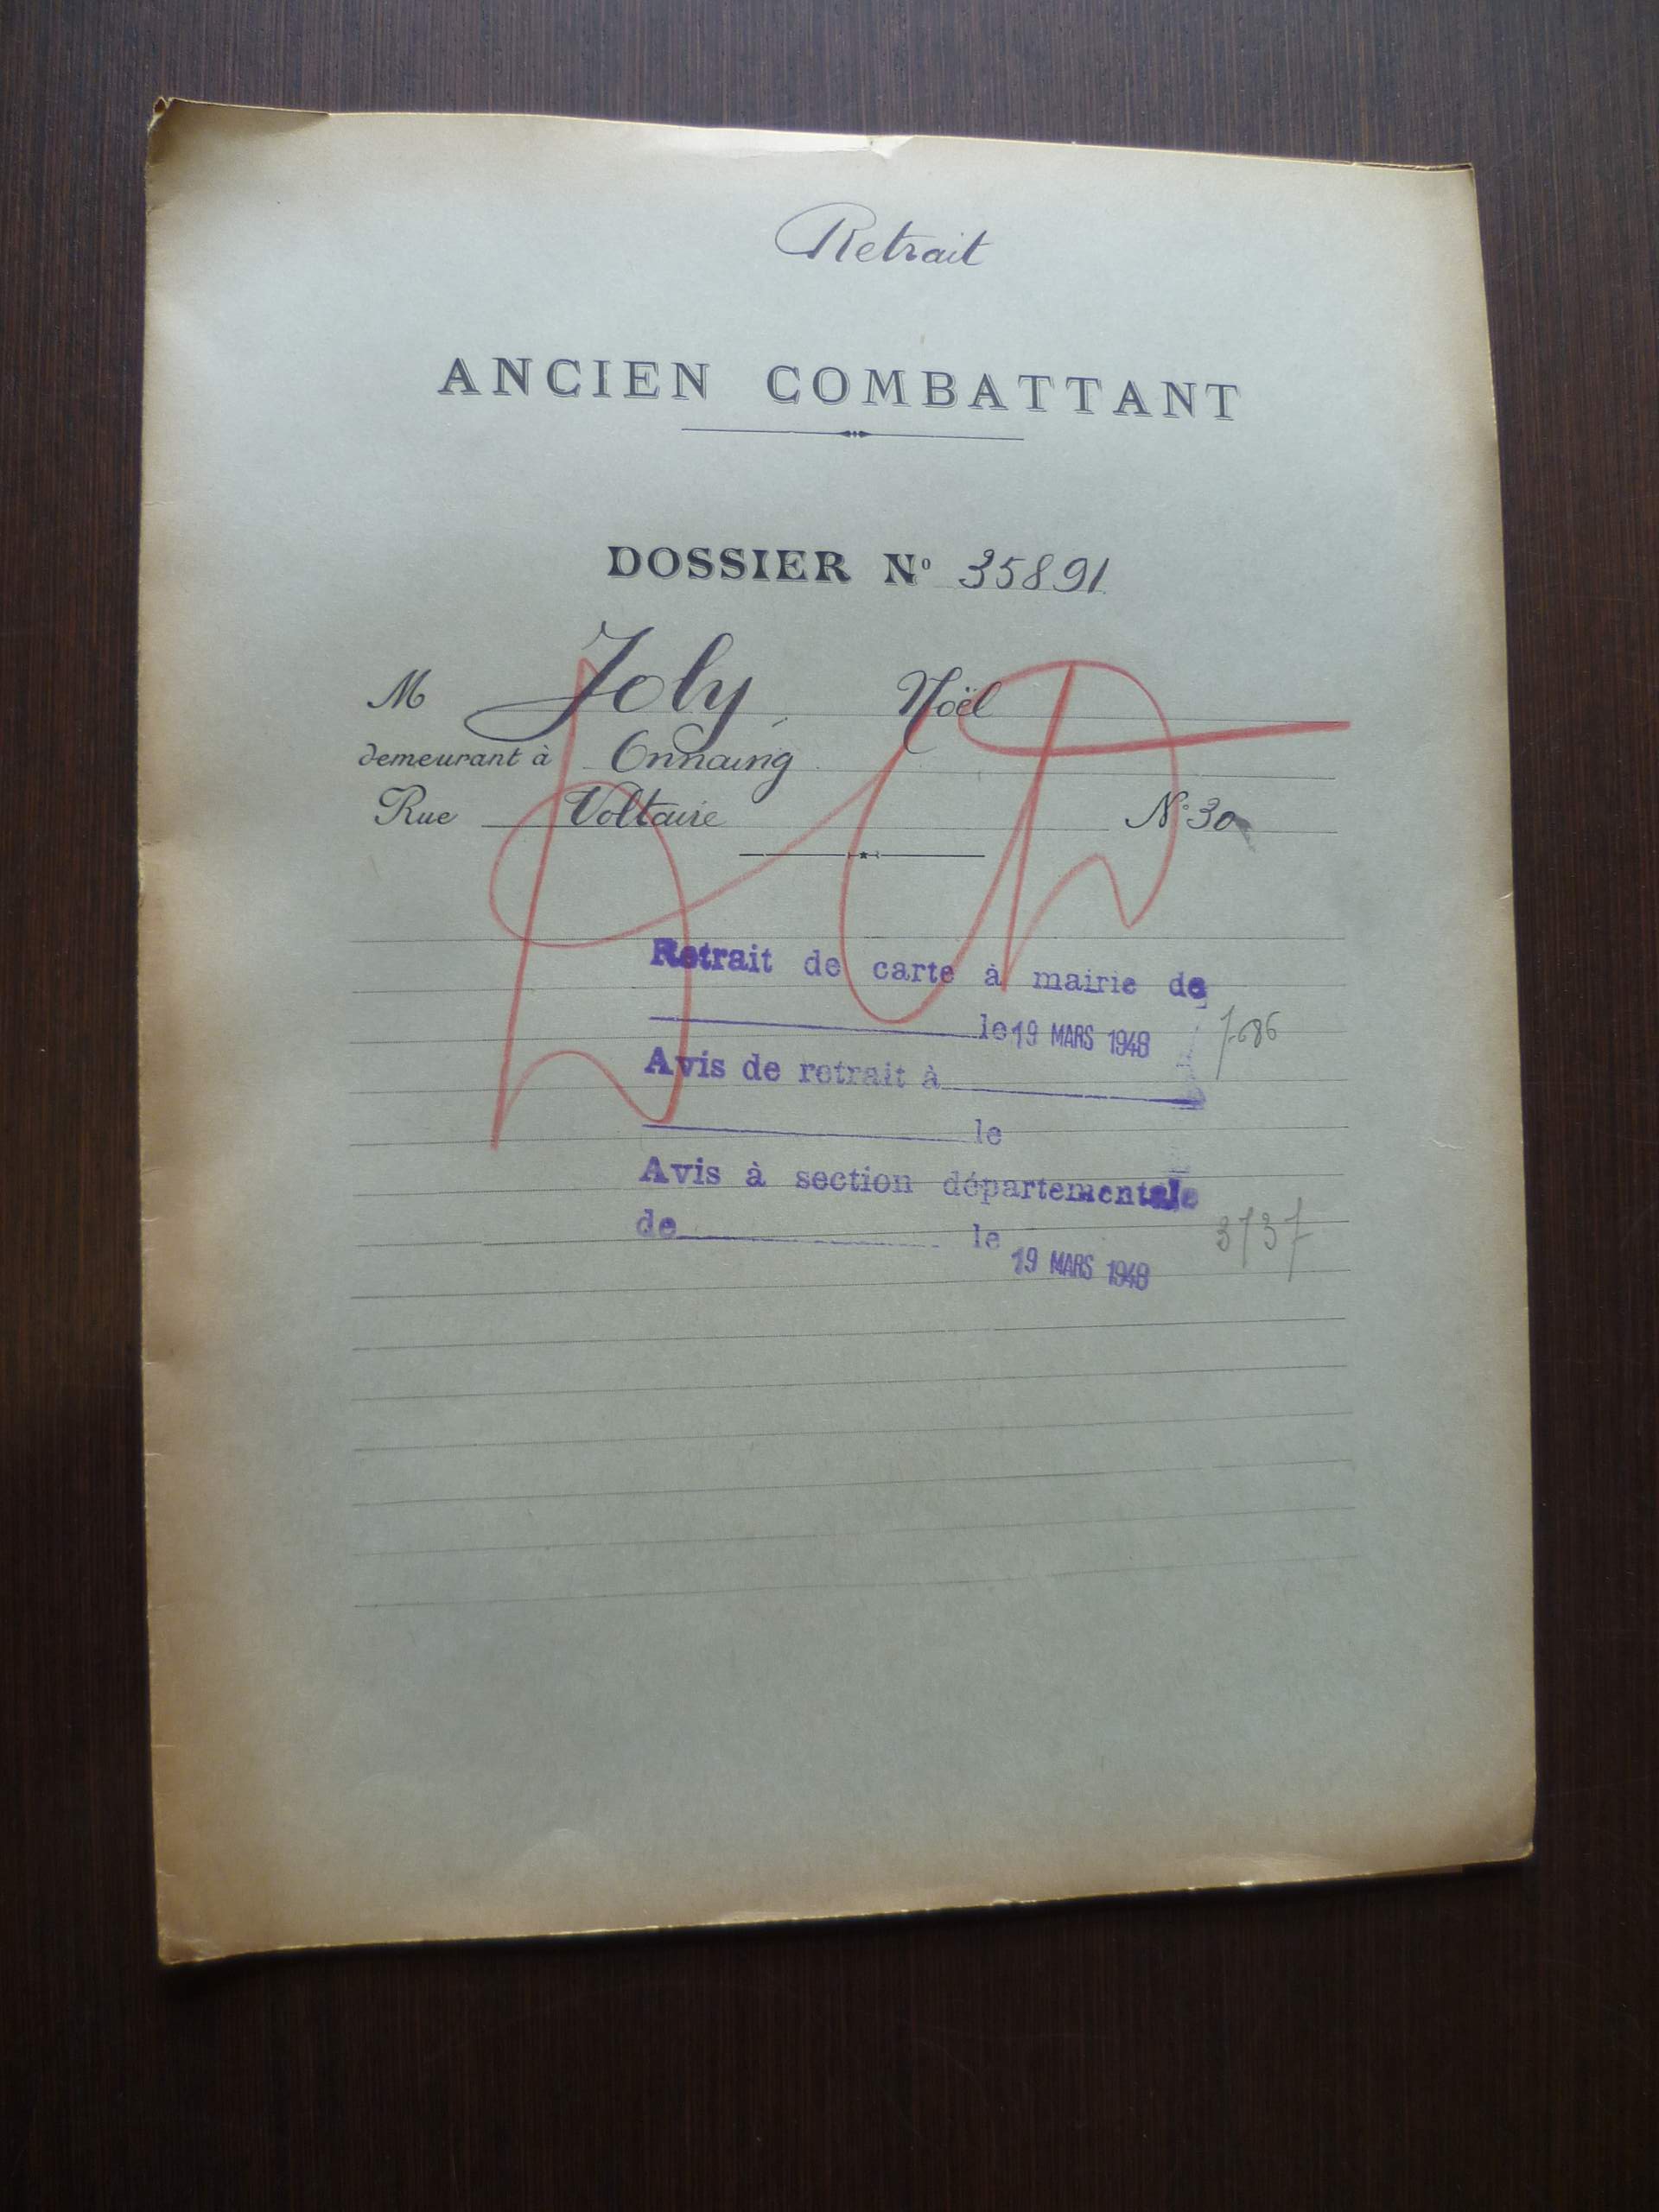 Retrait
ANCIEN COMBATTANT
DOSSIER Nº 35891
M Joly, Noël
demeurant à Onnaing
Rue Voltaire Nº 30
Retrait de carte à mairie de
le 19 MARS 1948
Avis de retrait à
le
Avis à section départementale
de le
19 MARS 1948
3737